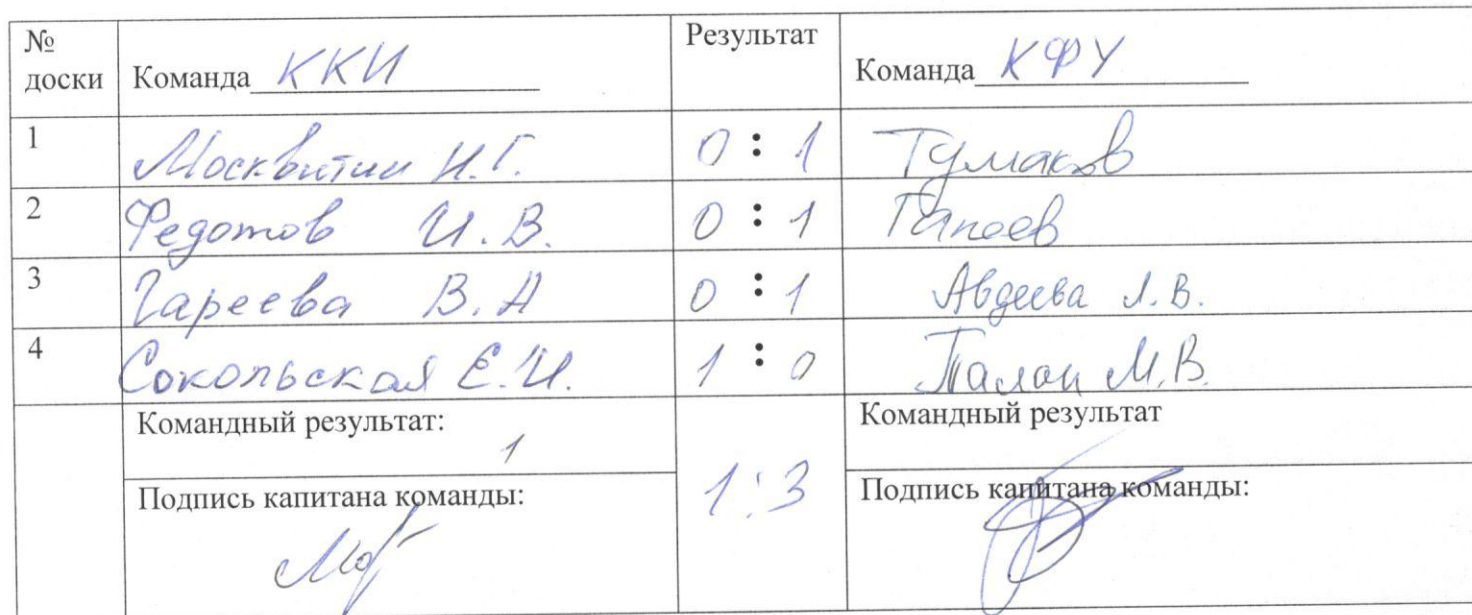 № доски Команда ККИ Результат Команда КФУ
1 Москвитин И.Г. 0 : 1 Тумаков
2 Федотов И.В. 0 : 1 Гапоев
3 Гареева В.А 0 : 1 Авдеева Л.В.
4 Сокольская Е.И. 1 : 0 М.В.
Командный результат: 1 1:3 Командный результат
Подпись капитана команды: Подпись капитана команды: